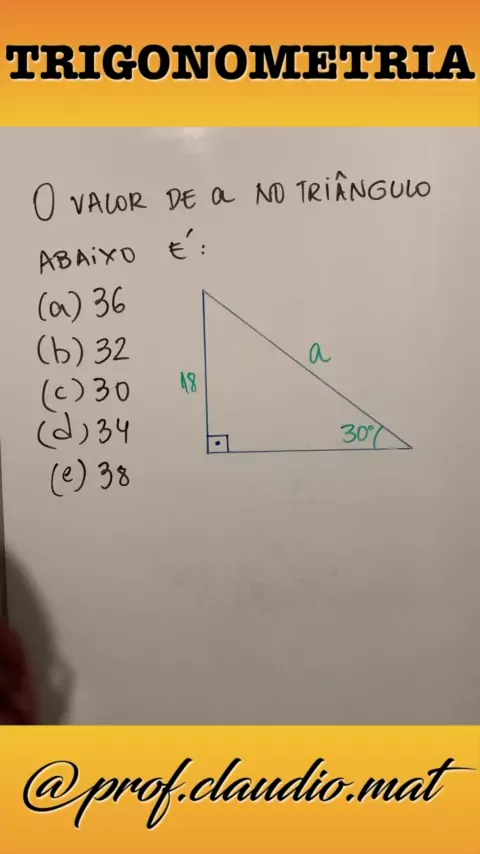 TRIGONOMETRIA
O VALOR DE a NO TRIÂNGULO
ABAIXO É:
(a) 36
(b) 32
(c) 30
(d) 34
(e) 38
18
a
30°
@prof.claudio.mat